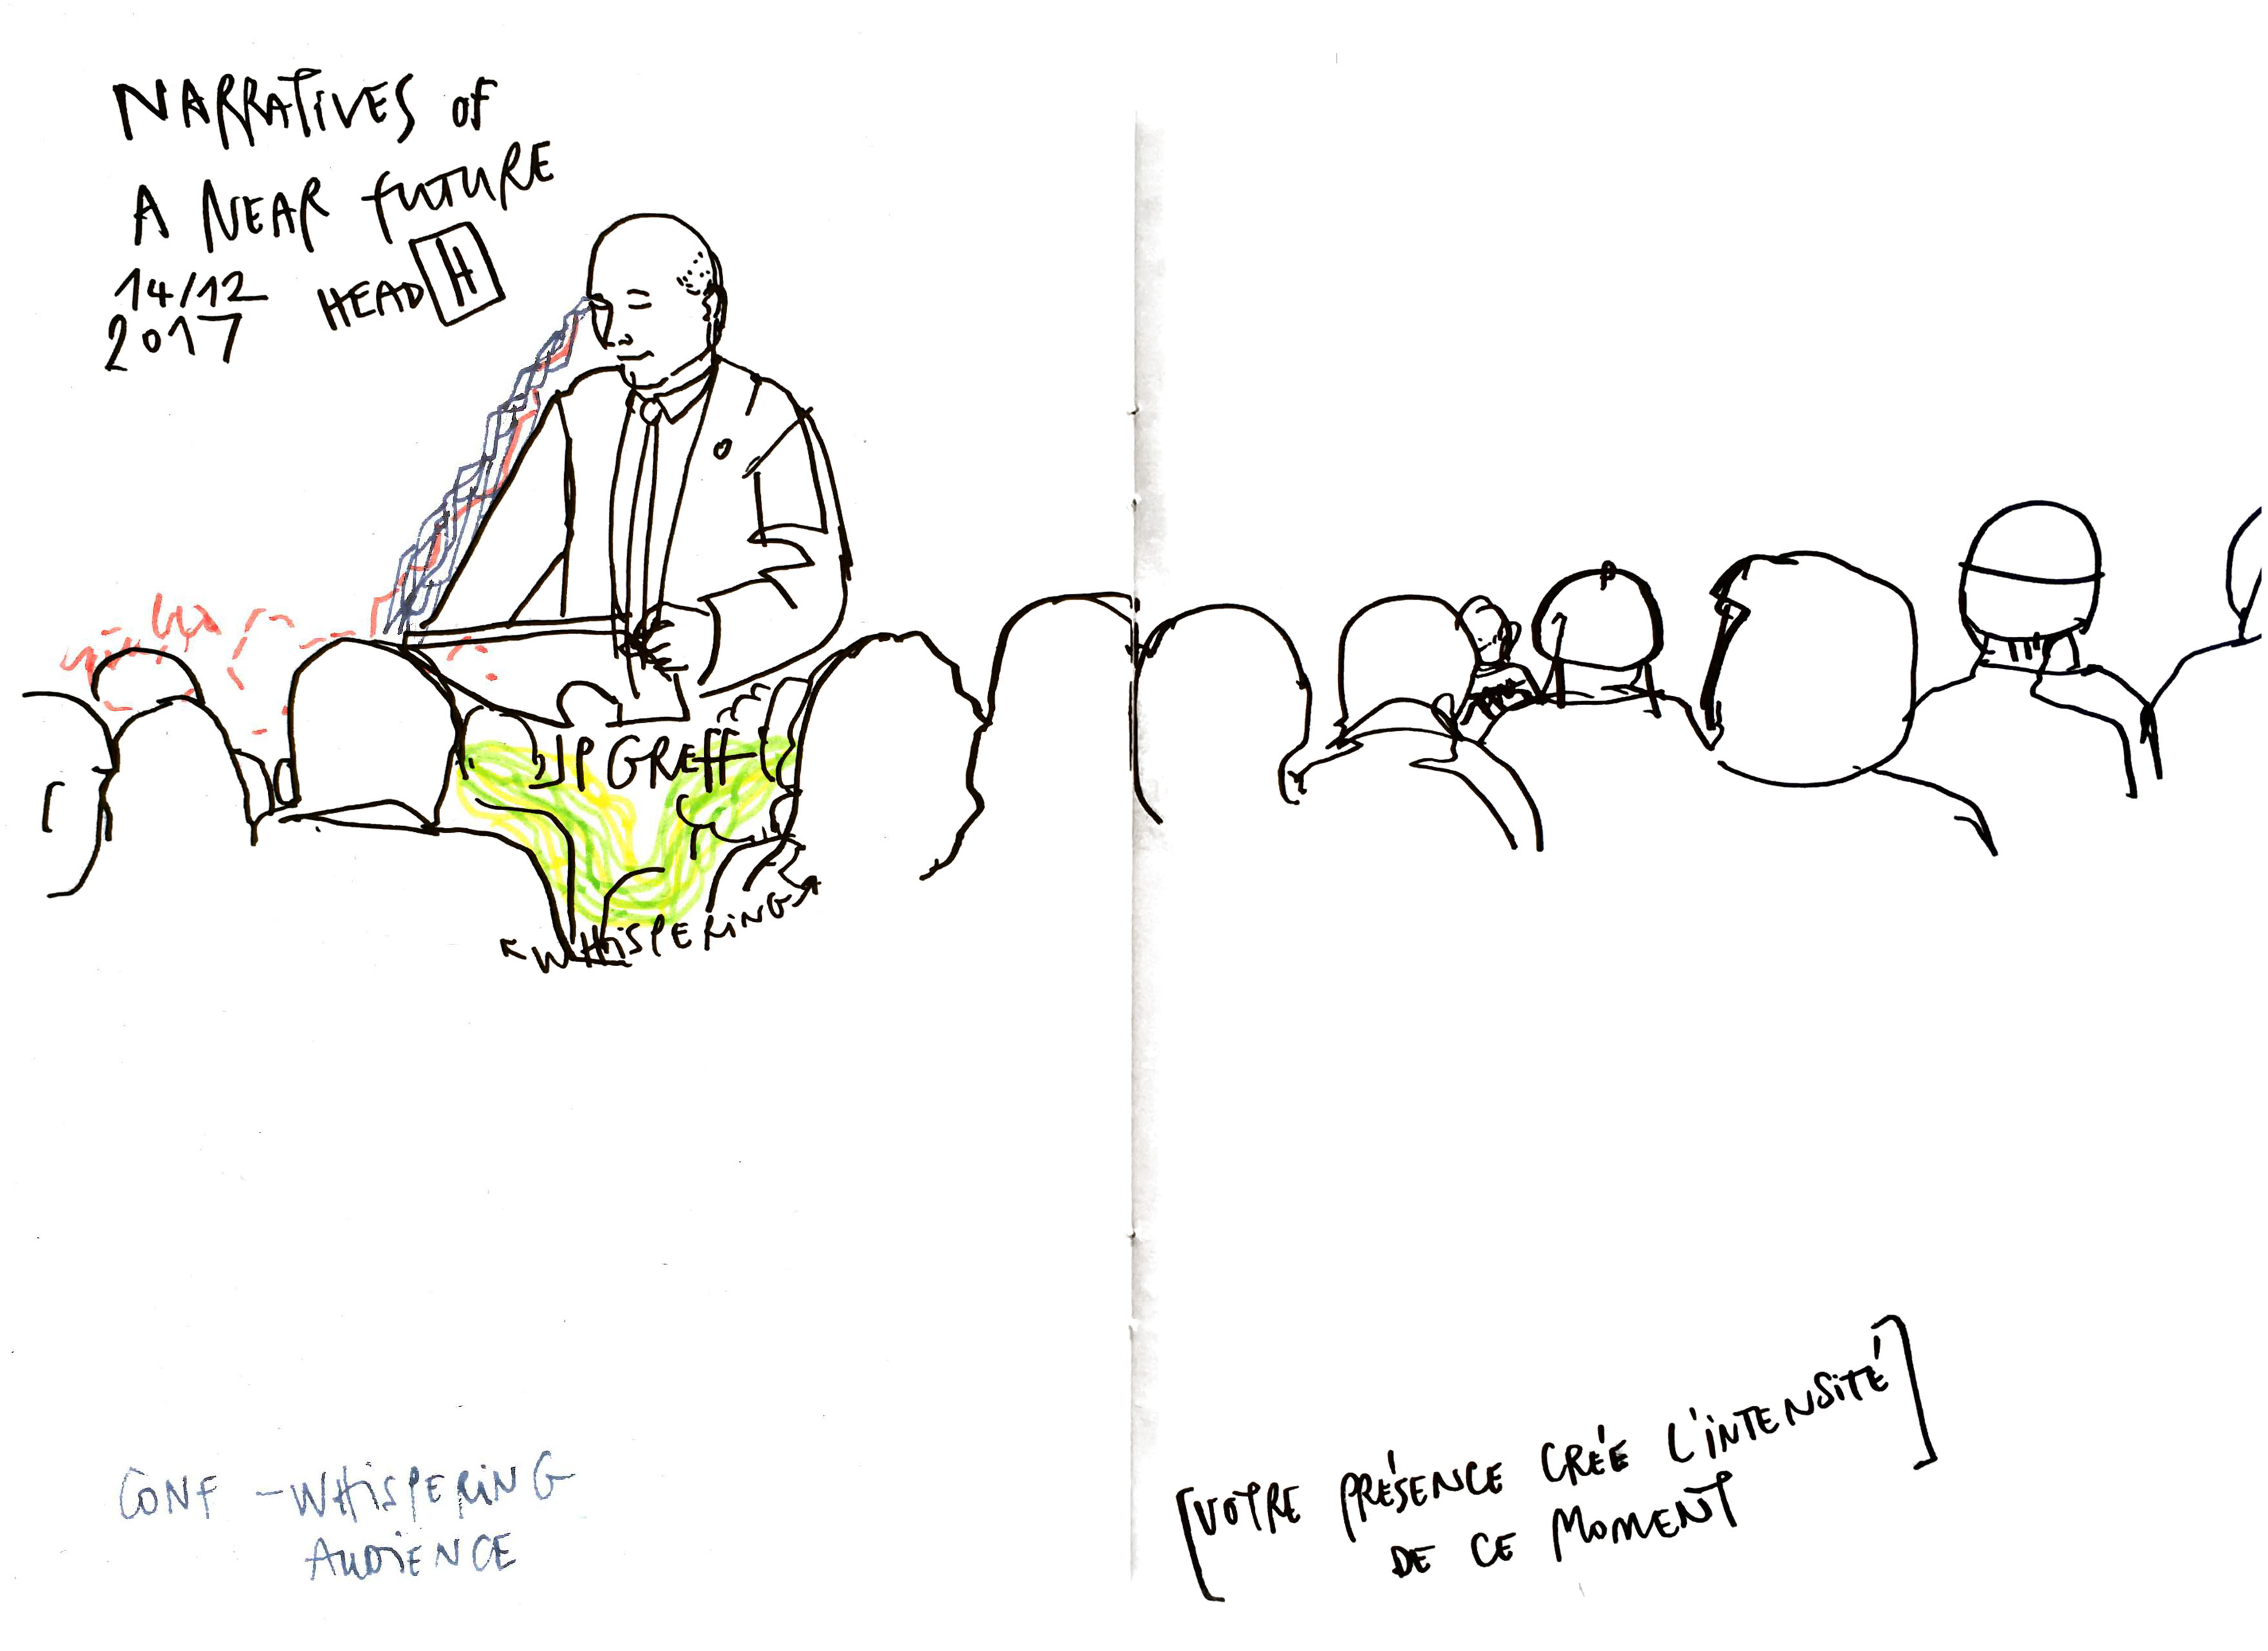 NARRATIVES of
A NEAR fUTURE
14/12
2017
HEAD H
JP GREff
WHiSPERiNG
CONF - WHiSPERiNG
AUDiENCE
[VOTRE PRÉSENCE CRÉE L'iNTENSiTÉ]
DE CE MOMENT